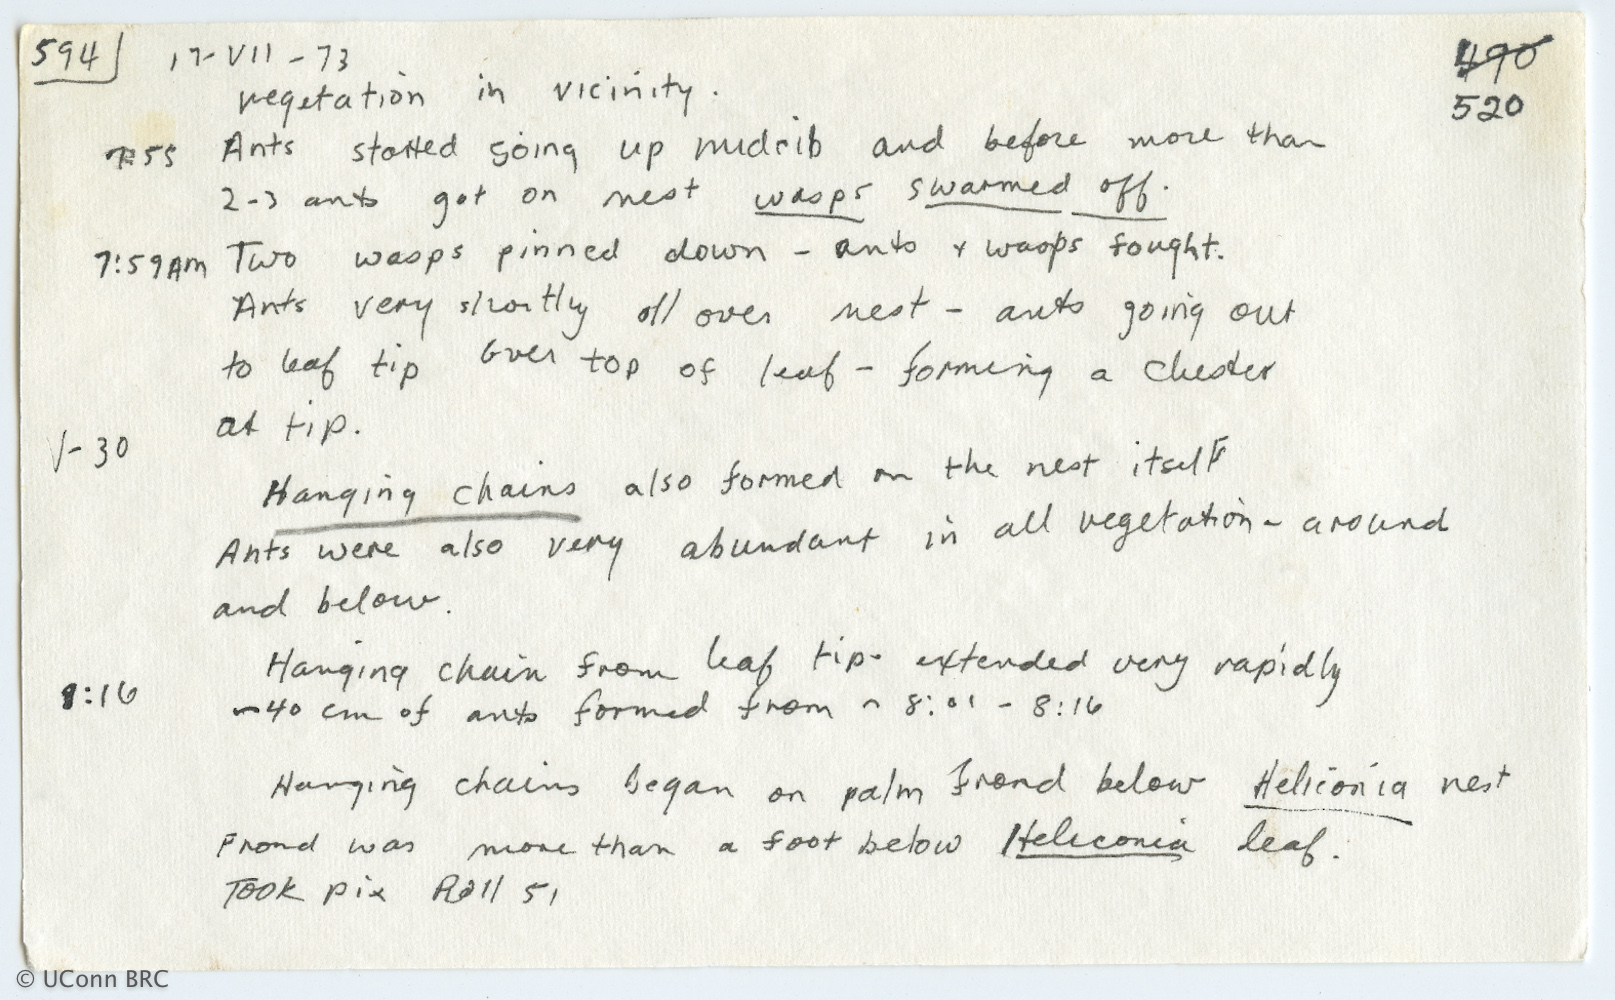 594 17-VII-73 490
vegetation in vicinity. 520
7:55 Ants started going up midrib and before more than
2-3 ants got on nest wasps swarmed off.
7:59AM Two wasps pinned down - ants + wasps fought.
Ants very shortly all over nest - ants going out
to leaf tip over top of leaf - forming a cluster
at tip.
V-30
Hanging chains also formed on the nest itself
Ants were also very abundant in all vegetation - around
and below.
Hanging chain from leaf tip - extended very rapidly
8:16 ~40 cm of ants formed from ~ 8:01 - 8:16
Hanging chains began on palm frond below Heliconia nest
Frond was more than a foot below Heliconia leaf.
Took pix Roll 51
© UConn BRC